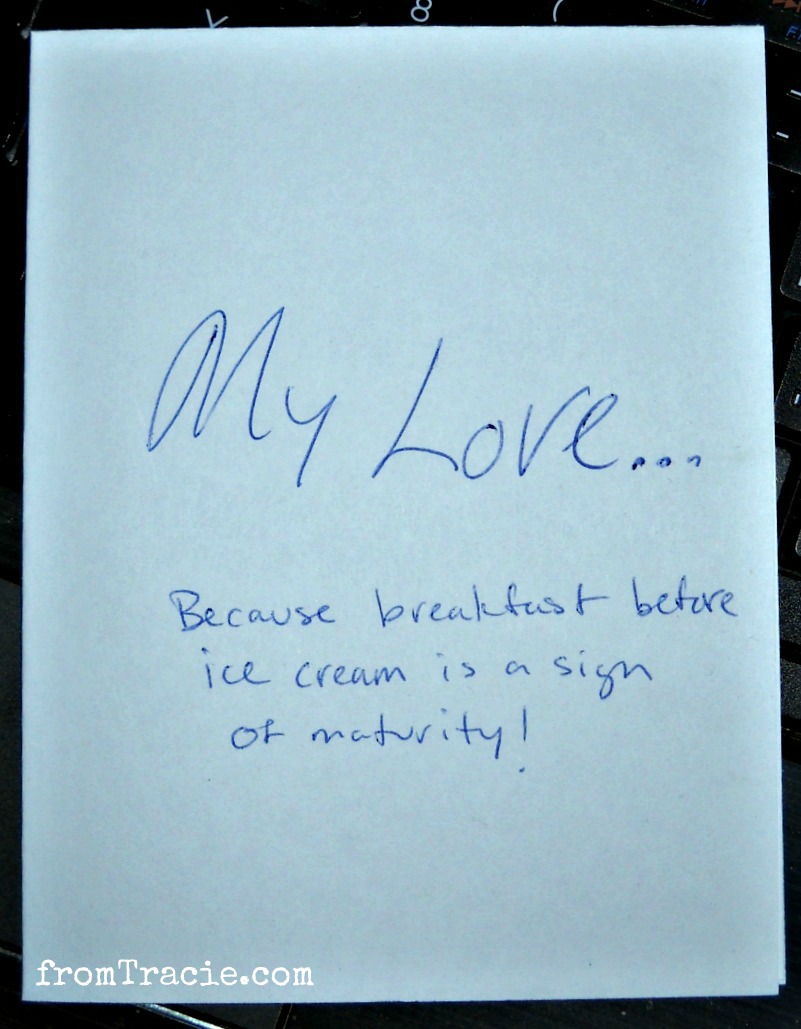 My Love...
Because breakfast before
ice cream is a sign
of maturity!
fromTracie.com